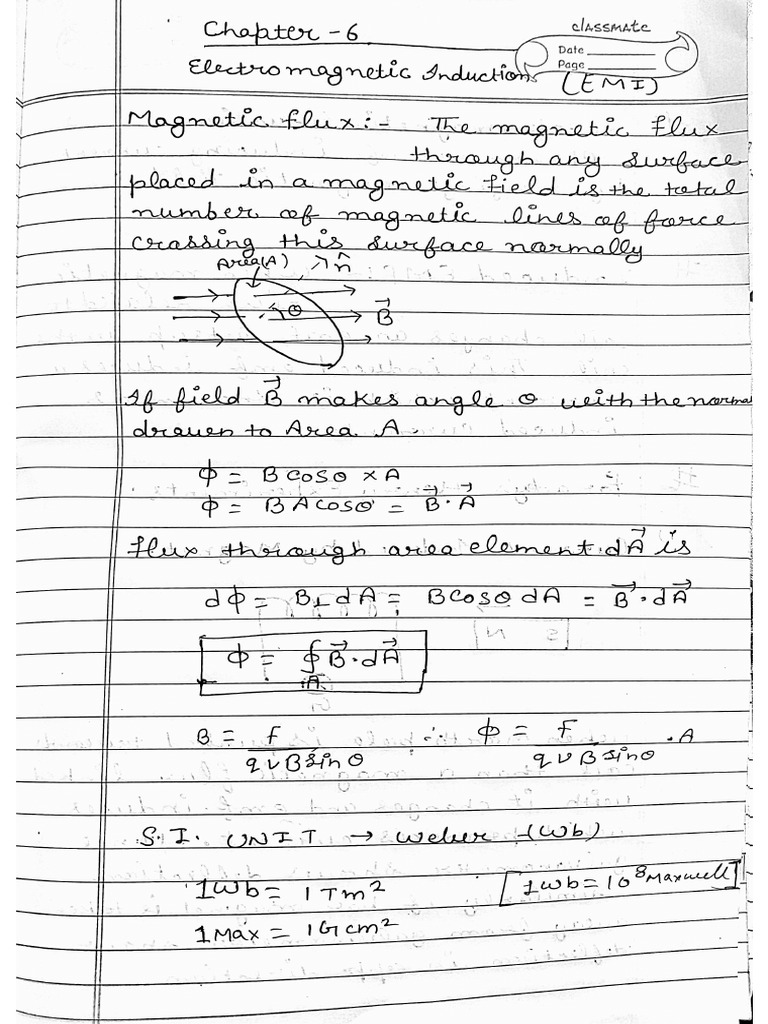 Chapter - 6
classmate
Date
Page
Electromagnetic Induction (EMI)
Magnetic flux:- The magnetic flux
through any surface
placed in a magnetic field is the total
number of magnetic lines of force
crossing this surface normally
Area(A) n̂
θ B⃗
If field B⃗ makes angle θ with the normal
drawn to Area A.
ϕ = B cosθ × A
ϕ = B A cosθ = B⃗ · A⃗
flux through area element dA⃗ is
dϕ = B⊥ dA = B cosθ dA = B⃗ · dA⃗
ϕ = ∮ B⃗ · dA⃗
A
B = F / qvB sinθ ∴ ϕ = F / qvB sinθ · A
S.I. UNIT → weber (Wb)
1 wb = 1 Tm² [1 wb = 10⁸ Maxwell]
1 Max = 1 G cm²